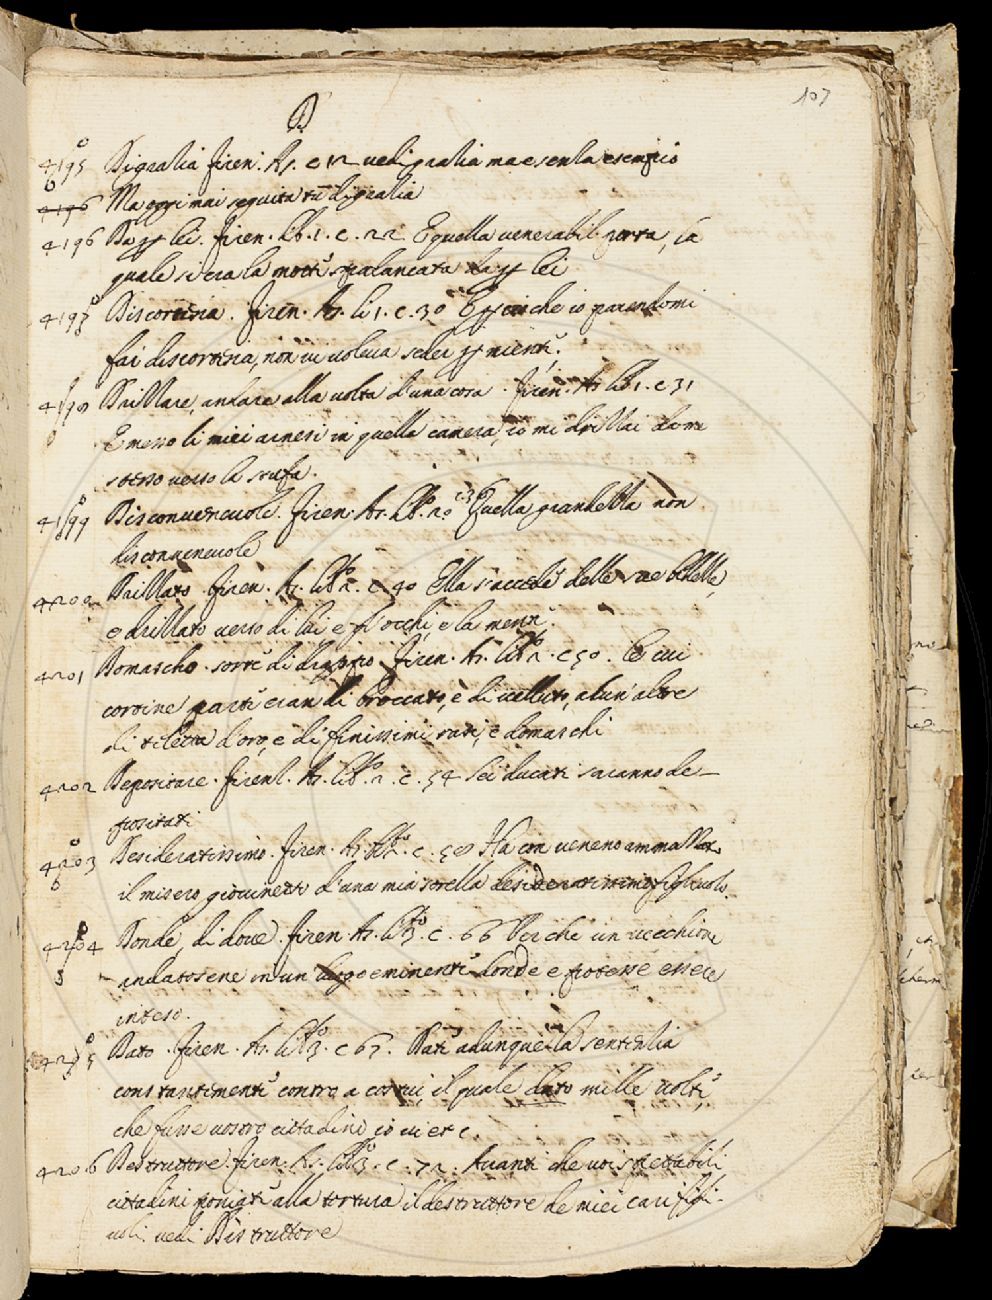 107
D
4195 Digratia firen. As. c 12 vedi gratia ma e senza esempio
4196 Ma oggi mai seguita tu digratia
4196 Da per lei. firen. lib. 1. c. 22 E quella venerabil porta, la
quale si era la notte spalancata da per lei
4197 Discortina. firen. As. li 1. c. 30 E perciò che io parendomi
fai discortina, non vi voleva seder per niente.
4198 Drizzare, andare alla volta d'una cosa. firen. As. lib. 1. c 31
E messo li miei arnesi in quella camera, io mi drizzai da me
stesso verso la stufa.
4199 Disconvenevole. firen. As. lib. 2. c 3 Quella grandezza non
disconvenevole
4200 Drizzato firen. As. lib. 2. c 40 Ella s'accede delle sue bellezze,
e drizzato verso di lui e gl'occhi, e la mente.
4201 Domascho. sorte di drappo firen. As. lib. 2. c 50. Le cui
cortine parte eran di broccato, e di velluto, alcun'altre
di teletta d'oro, e di finissimi rasi, e domaschi
4202 Depositare. firenz. As. lib. 2. c. 54 sei ducati saranno de-
positati
4203 Desideratissimo. firen. As. lib. 2. c. 58 Ha con veneno ammazzato
il misero giovinetto d'una mia sorella desideratissimo figliuolo.
4204 Donde, di dove. firen As. li 3. c. 66 Perche un vecchione
andatosene in un luogo eminente donde e potesse essere
inteso.
4205 Dato. firen. As. lib. 3. c 67. Date adunque la sententia
constantemente contro a costui, il quale dato mille volte,
che fusse vostro cittadino io vi etc
4206 Destruttore. firen. As. lib. 3. c. 72. Avanti che voi spettabili
cittadini poniate alla tortura il destruttore de miei cari figli-
uoli vedi Distruttore